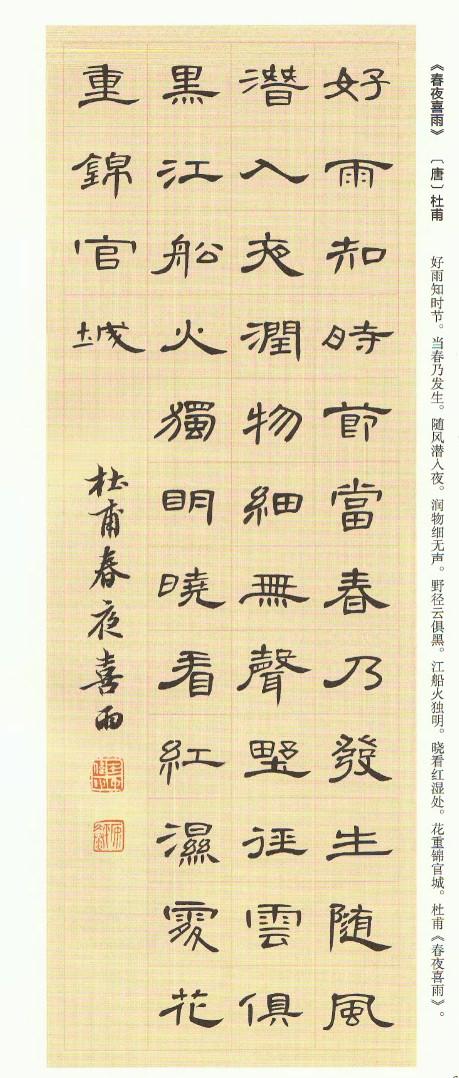 《春夜喜雨》 〔唐〕杜甫
好雨知时节。当春乃发生。随风潜入夜。润物细无声。野径云俱黑。江船火独明。晓看红湿处。花重锦官城。杜甫《春夜喜雨》。
好雨知時節當春乃發生随風
潛入夜潤物細無聲野徑雲俱
黑江船火獨明曉看紅濕處花
重錦官城
杜甫春夜喜雨